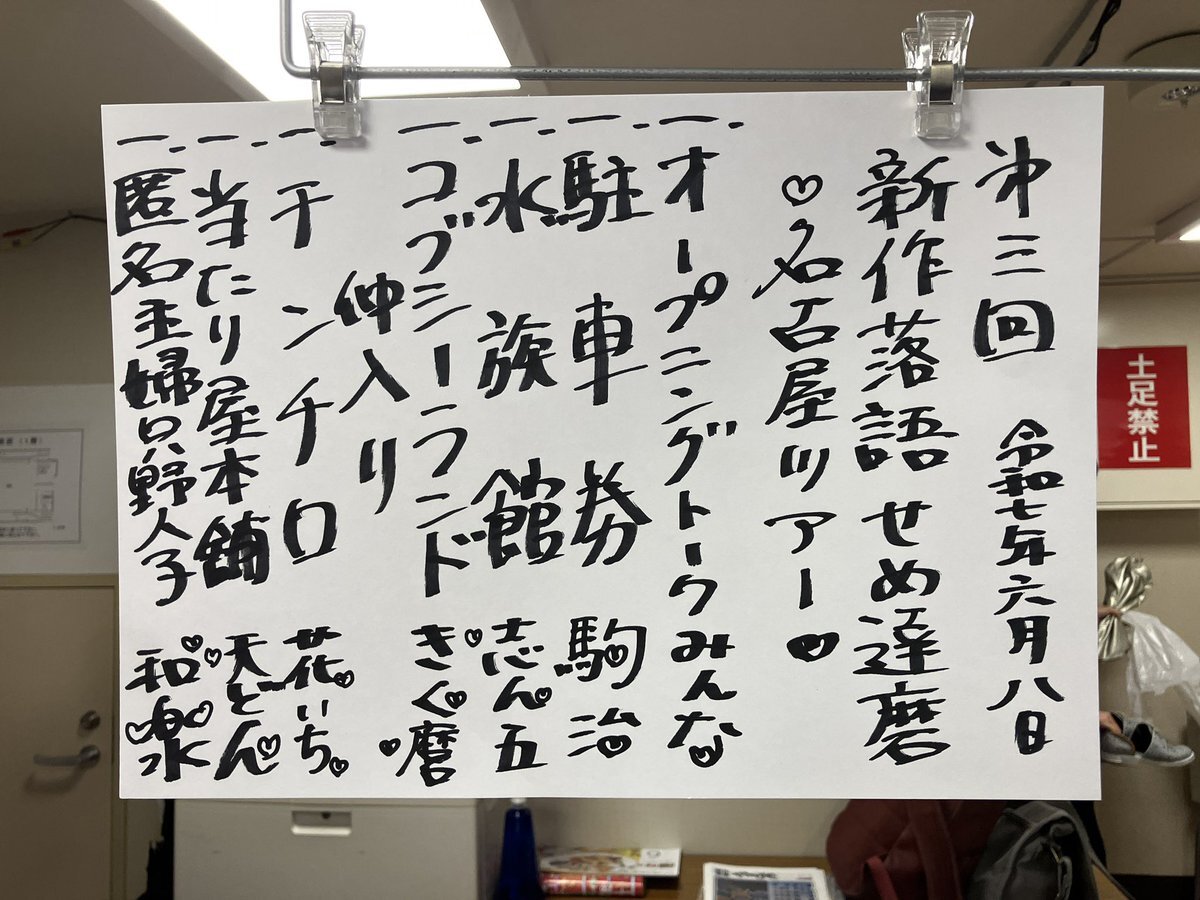 第三回 令和七年六月八日
新作落語せめ達磨
♡名古屋ツアー♥
一、オープニングトークみんな
一、駐車券 駒治
一、水族館 志ん五
一、コブシーランド きく麿
仲入り
一、チンチロ 花いち
一、当たり屋本舗 天どん
一、匿名主婦只野人子 和泉
土足禁止